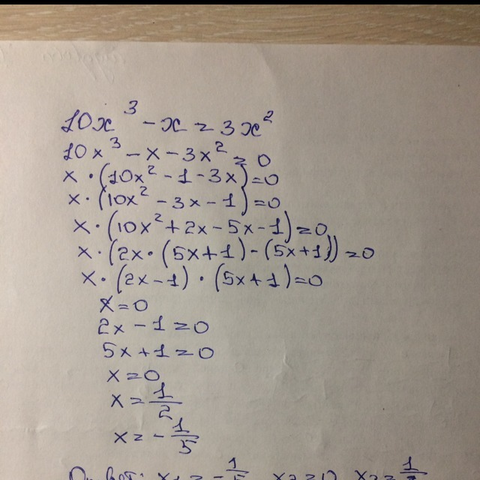 10x³ - x = 3x²
10x³ - x - 3x² = 0
x · (10x² - 1 - 3x) = 0
x · (10x² - 3x - 1) = 0
x · (10x² + 2x - 5x - 1) = 0
x · (2x · (5x + 1) - (5x + 1)) = 0
x · (2x - 1) · (5x + 1) = 0
x = 0
2x - 1 = 0
5x + 1 = 0
x = 0
x = 1/2
x = - 1/5
Ответ: x₁ = - 1/5, x₂ = 0, x₃ = 1/2